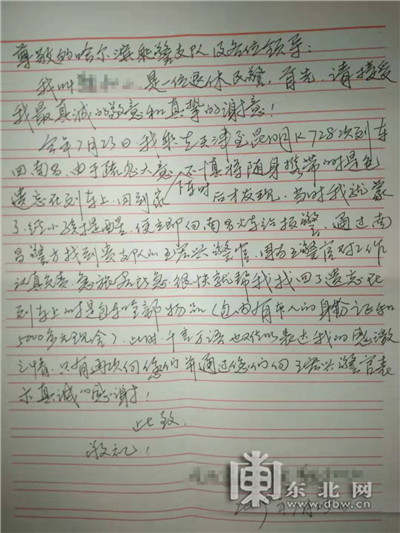 尊敬的哈尔滨乘警支队及各位领导：
我叫 是一位退休民警，首先，请接受
我最真诚的敬意和真挚的谢意！
今年7月23日我乘 天津至昆明K728次列车
回南昌，由于疏忽大意，不慎将随身携带的提包
遗忘在列车上，回到家 时后才发现，当时我就蒙
了，经 提醒，便立即向南昌 报警，通过南
昌警方找到贵支队的王 警官，因为王警官对工作
认真负责，急旅客所急，很快就帮我找回了遗忘在
列车上的提包和全部物品（包内有本人的身份证和
5000多元现金）此时，千言万语也 表达我的感激
之情，只有再次向您们并通过您们向王 警官表
示真诚的感谢！
此致
敬礼！
东北网